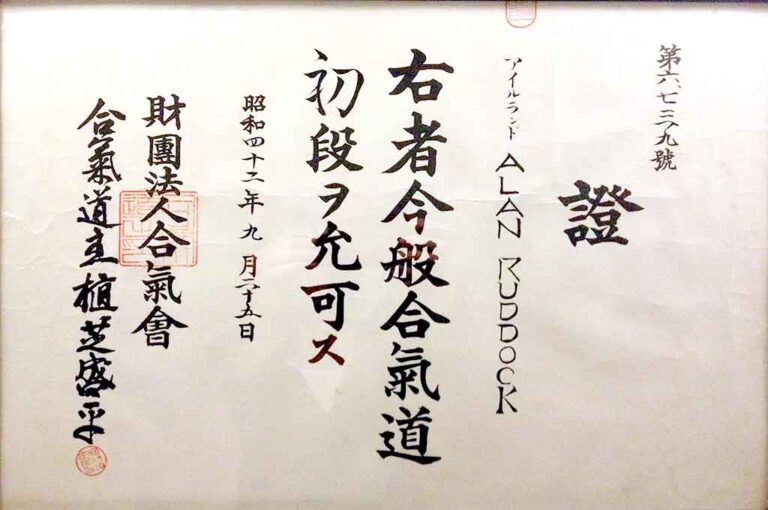 第六、七三九號
證
アイルランド ALAN RUDDOCK
右者今般合氣道
初段ヲ允可ス
昭和四十二年九月二十五日
財團法人合氣會
合氣道主植芝盛平